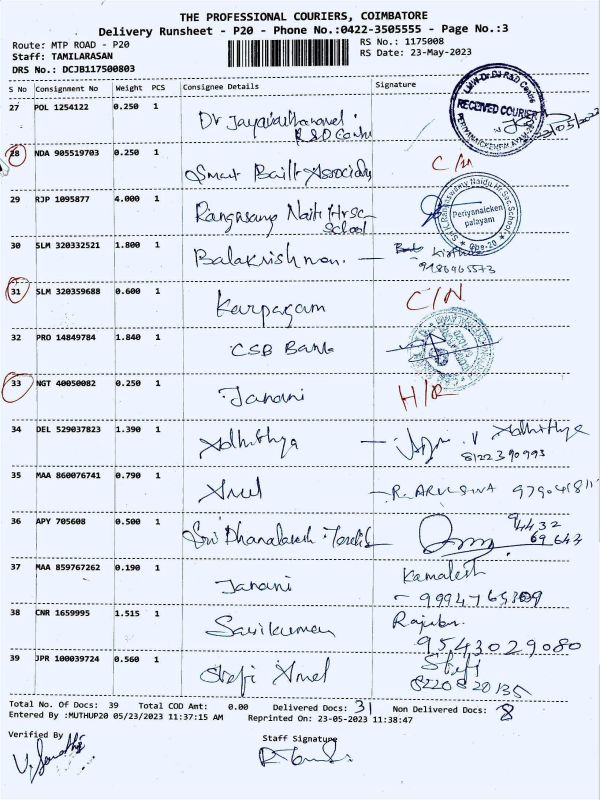 THE PROFESSIONAL COURIERS, COIMBATORE
Delivery Runsheet - P20 - Phone No.:0422-3505555 - Page No.:3
Route: MTP ROAD - P20 RS No.: 1175008
Staff: TAMILARASAN RS Date: 23-May-2023
DRS No.: DCJB117500803
S No Consignment No Weight PCS Consignee Details Signature
27 POL 1254122 0.250 1 Dr
R&D Centre
RECEIVED COURIER
28 NDA 905519703 0.250 1 Smart C/N
29 RJP 1095877 4.000 1 Rangasamy Hr Sc
School
Periyanaicken
palayam
Cbe-20
30 SLM 320332521 1.800 1 Balakrishnan. —
31 SLM 320359688 0.600 1 Karpagam C/N
32 PRO 14849784 1.840 1 CSB Bank
33 NGT 40050082 0.250 1 Janani
34 DEL 529037823 1.390 1 Adhithya — V Adhithya
8122390993
35 MAA 860076741 0.790 1 Arul
36 APY 705608 0.500 1 Sri
94432
69643
37 MAA 859767262 0.190 1 Janani Kamalesh
38 CNR 1659995 1.515 1 Sasikumar
9543029080
39 JPR 100039724 0.560 1 Stefi Arul Stefi
8220820135
Total No. Of Docs: 39 Total COD Amt: 0.00 Delivered Docs: 31 Non Delivered Docs: 8
Entered By :MUTHUP20 05/23/2023 11:37:15 AM Reprinted On: 23-05-2023 11:38:47
Verified By Staff Signature